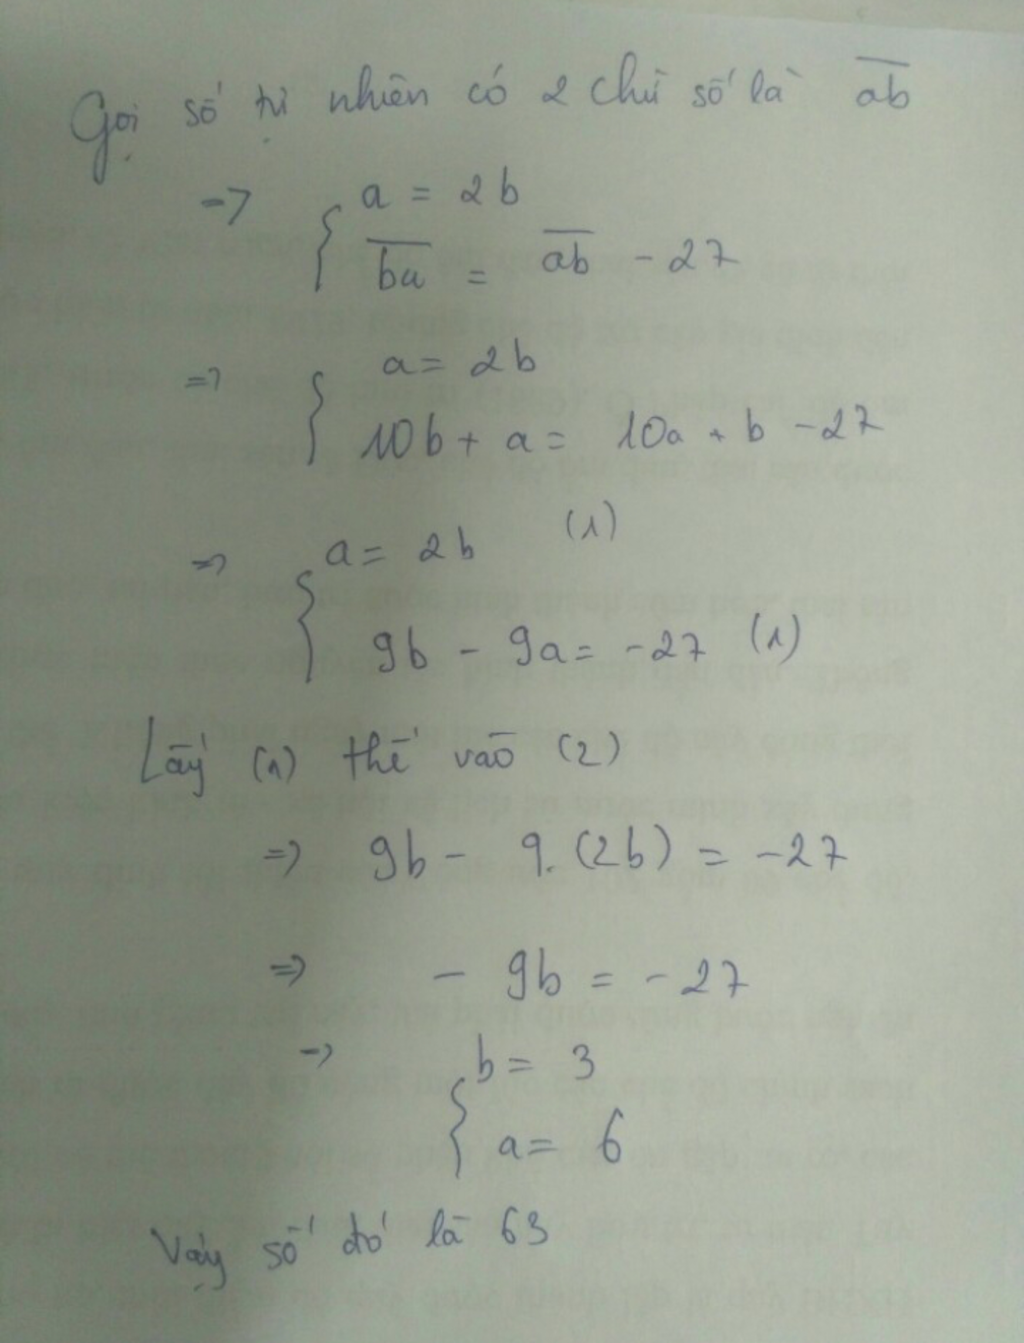 Gọi số tự nhiên có 2 chữ số là ab
=> { a = 2b
ba = ab - 27
=> { a = 2b
10b + a = 10a + b - 27
=> { a = 2b (1)
9b - 9a = -27 (1)
Lấy (1) thế vào (2)
=> 9b - 9.(2b) = -27
=> - 9b = - 27
=> { b = 3
a = 6
Vậy số đó là 63